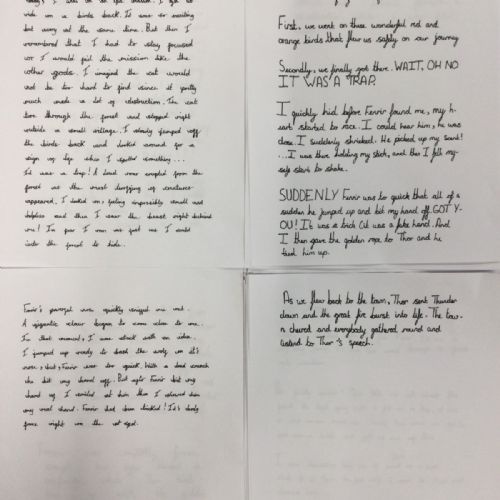 ride on a birds back. It was so exciting
but scary at the same time. But then I
remembered that I had to stay focused
or I would fail the mission like the
other gods. I imagined the cat would
not be too hard to find since it pretty
much made a lot of destruction. The cat
tore through the forest and stopped right
outside a small village. I slowly jumped off
the birds back and looked around for a
sign of life when I spotted something...
It was a trap! A loud roar erupted from the
forest as the most terrifying of creatures
appeared. I looked on, feeling impossibly small and
helpless and then I saw the beast right behind
me! In fear I ran as fast as I could
into the forest to hide.
First, we went on these wonderful red and
orange birds that flew us safely on our journey
Secondly, we finally got there. WAIT, OH NO
IT WAS A TRAP.
I quickly hid before Fenrir found me, my h-
eart started to race. I could hear him, he was
close. I suddenly shrieked. He picked up my scent!
... I was there holding my stick, and then I felt my-
self start to shake.
SUDDENLY Fenrir was to quick that all of a
sudden he jumped up and bit my hand off. GOT Y-
OU! It was a trick (it was a fake hand. And
I then gave the golden rope to Thor and he
tied him up.
Fenrir's powerful nose quickly sniffed me out.
A gigantic colour began to come close to me.
In that moment, I was struck with an idea.
I jumped up ready to the wolf on it's
nose, but, Fenrir was too quick. With a loud
he bit my hand off. But after Fenrir bit my
hand off I smiled at him then I showed him
my real hand. Fenrir had been tricked! It's
face right on the
As we flew back to the town, Thor sent Thunder
down and the great fire burst into life. The tow-
n cheered and everybody gathered round and
listend to Thor's speech.